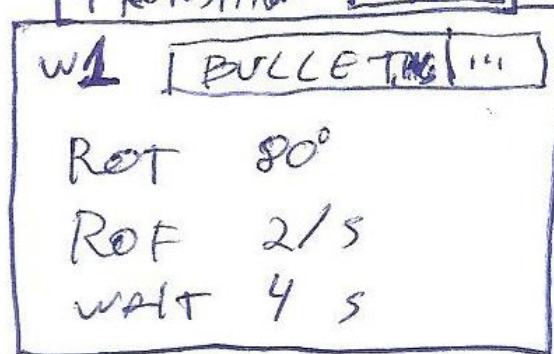 W1 BULLET ...
ROT 80°
ROF 2/s
WAIT 4 s